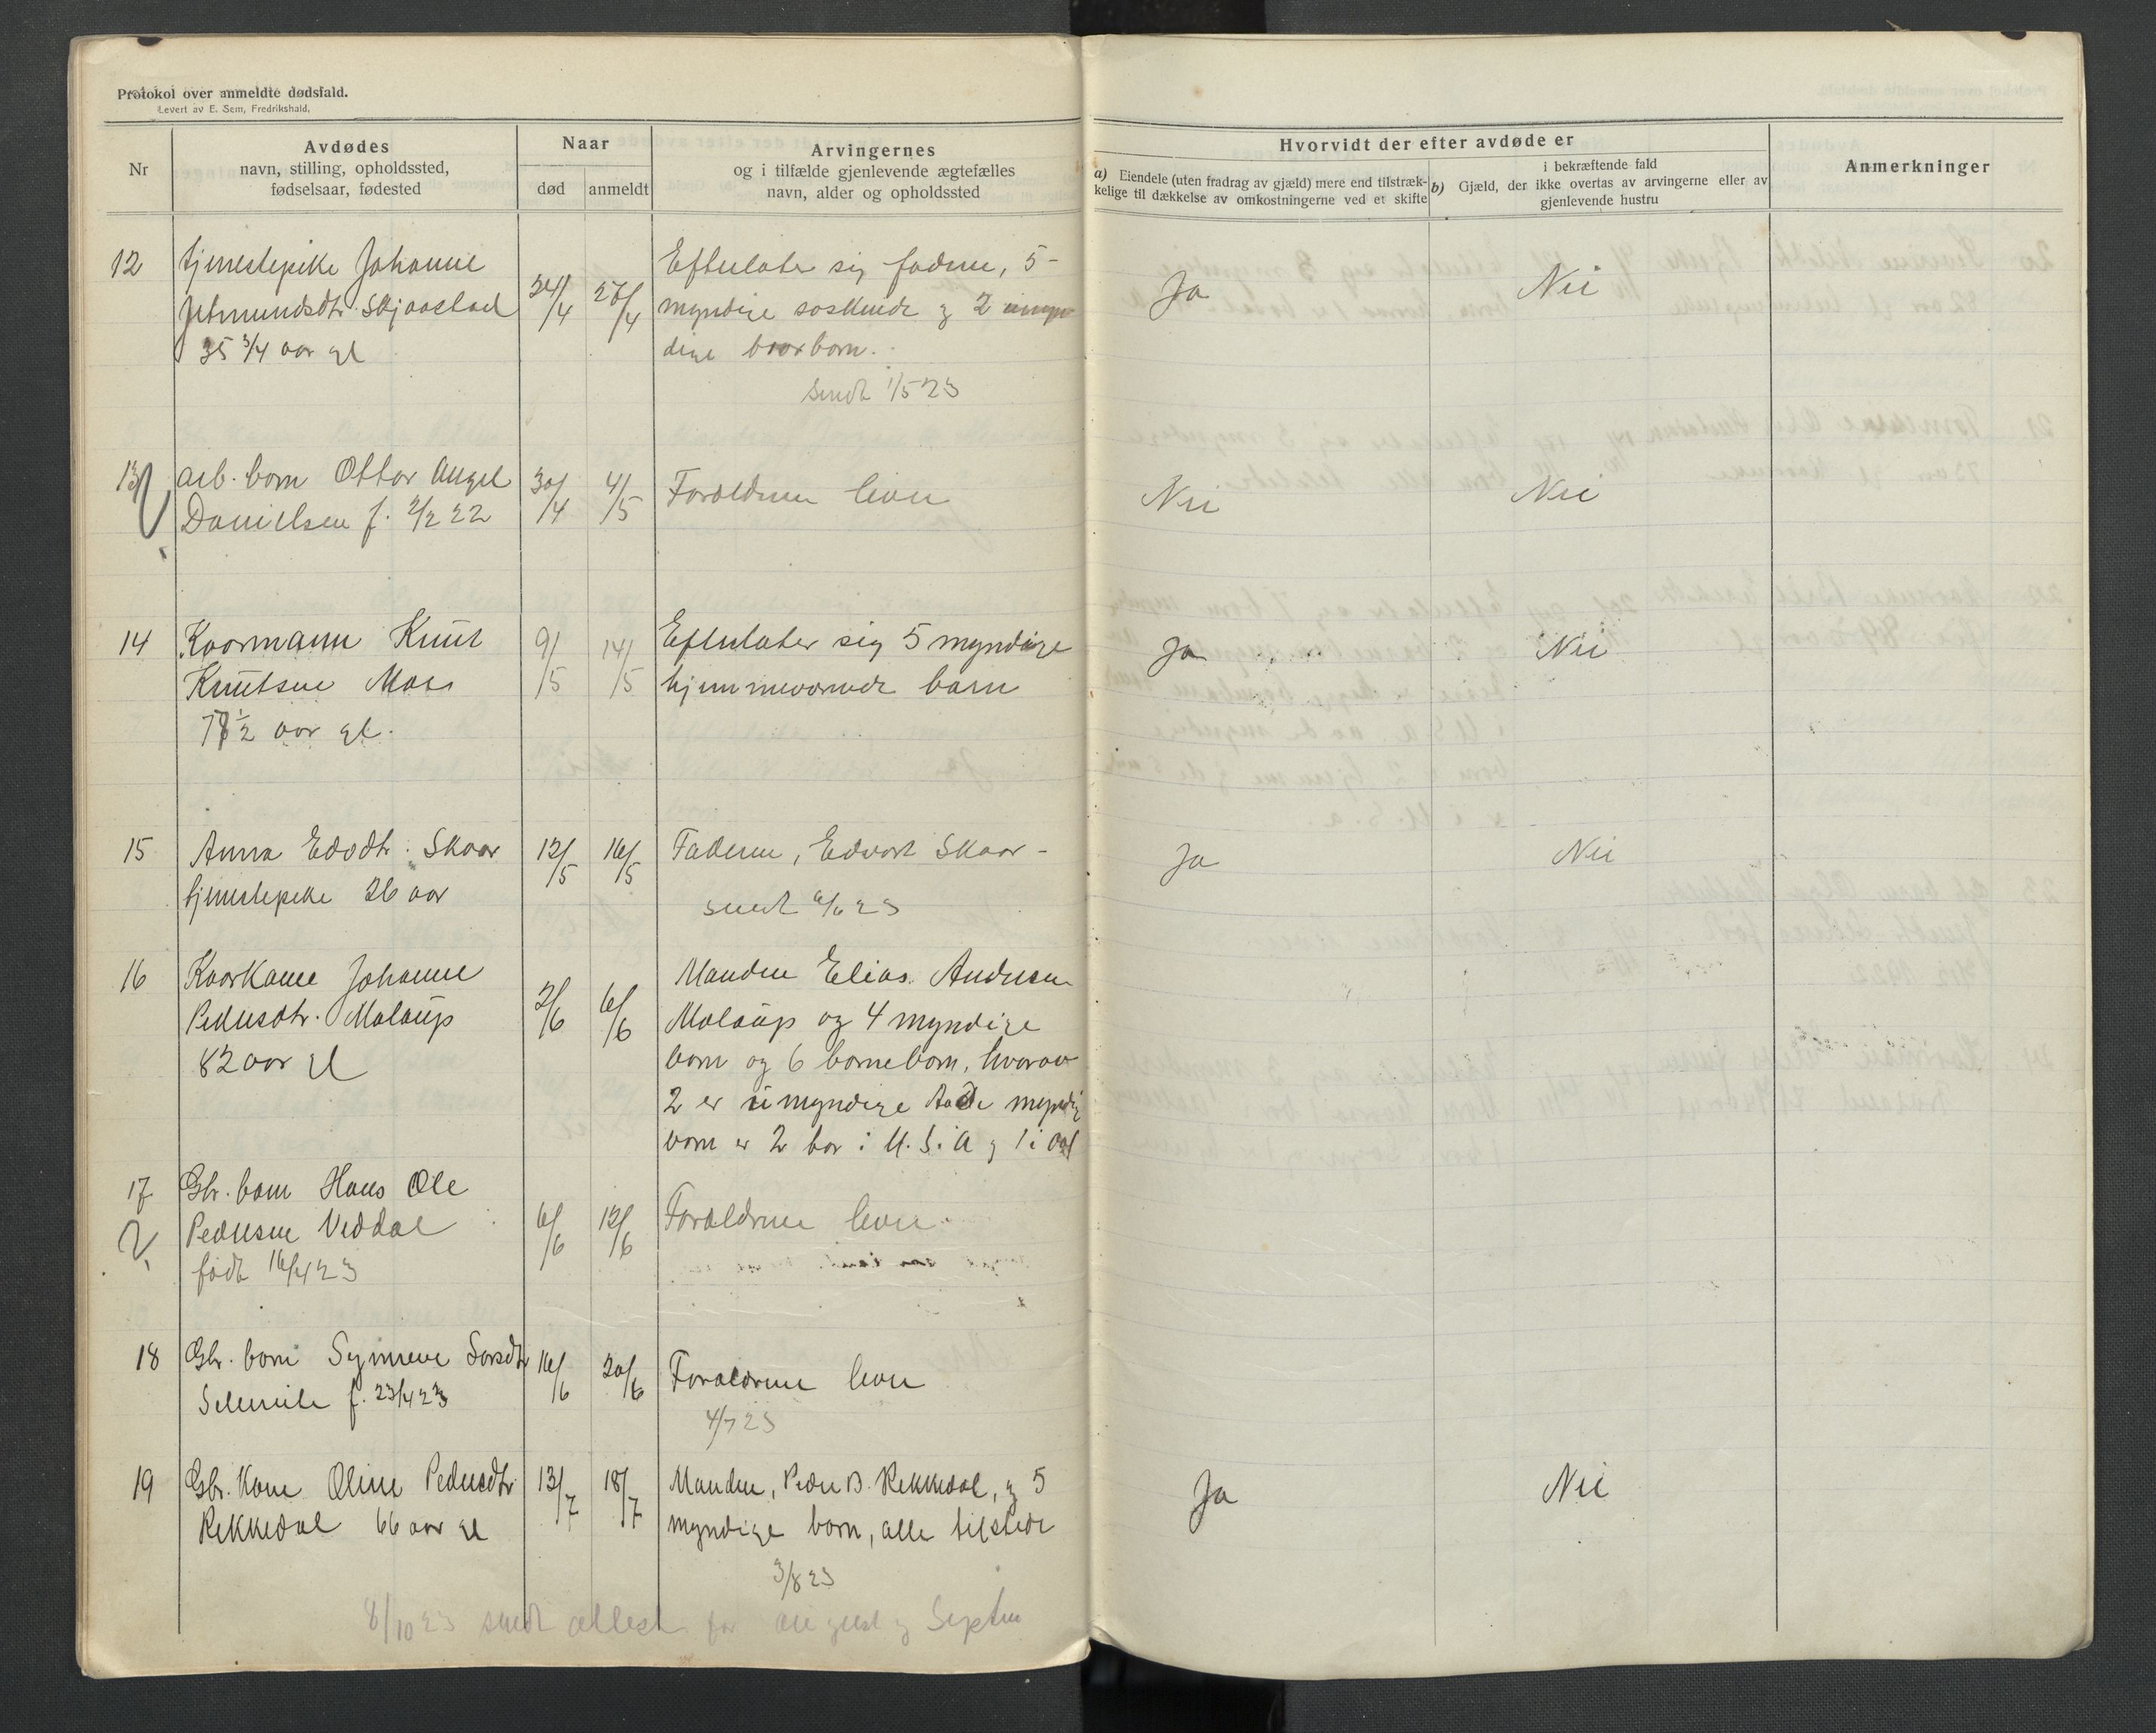 Protokol over anmeldte dødsfald.
Levert av E. Sem, Fredrikshald.
Nr
Avdødes
navn, stilling, opholdssted,
fødselsaar, fødested
Naar
død
anmeldt
Arvingernes
og i tilfælde gjenlevende ægtefælles
navn, alder og opholdssted
Hvorvidt der efter avdøde er
a) Eiendele (uten fradrag av gjæld) mere end tilstræk-
kelige til dækkelse av omkostningerne ved et skifte
i bekræftende fald
b) Gjæld, der ikke overtas av arvingerne eller av
gjenlevende hustru
Anmerkninger
12
tjenestepike Johanne
Jetmundsdtr. Skjaastad
35 3/4 aar gl
24/4
Efterlater sig faderen, 5
myndige søskende og 2 umyn
dige brorbørn.
sendt 1/5 23
Ja
Nei
13
arb. barn Ottar Angel
Danielsen f. 2/2 22
30/4
4/5
Forældrene lever
Nei
Nei
14
Kaarmann Knut
Knutsen Moss
aar gl.
9/5
14/5
Efterlater sig 5 myndige
hjemmeværende barn
Ja
Nei
15
Anna Edvdtr. Skaar
tjenestepike 26 aar
12/5
16/5
Faderen, Edvart Skaar
sendt 6/6 23
Ja
Nei
16
Kaarkone Johanne
Pedersdtr. Molaup
82 aar gl
2/6
6/6
Manden Elias Andersen
Molaup og 4 myndige
børn og 6 børnebørn, hvorav
2 er umyndige Av de myndig
børn er 2 bor i U.S.A og 1 i
17
Gbr. barn Hans Ole
Pedersen Veddal
født 16/4 23
6/6
12/6
Forældrene lever
18
Gbr. barn Synneve Larsdtr
f. 23/4 23
16/6
20/6
Forældrene lever
4/7 23
19
Gbr. Kone Oline Pedersdtr
Rekkedal 66 aar gl
13/7
18/7
Manden, Peder B. Rekkedal, og 5
myndige børn, alle tilstede
3/8 23
Ja
Nei
8/10 23 sendt attest for august og Septem